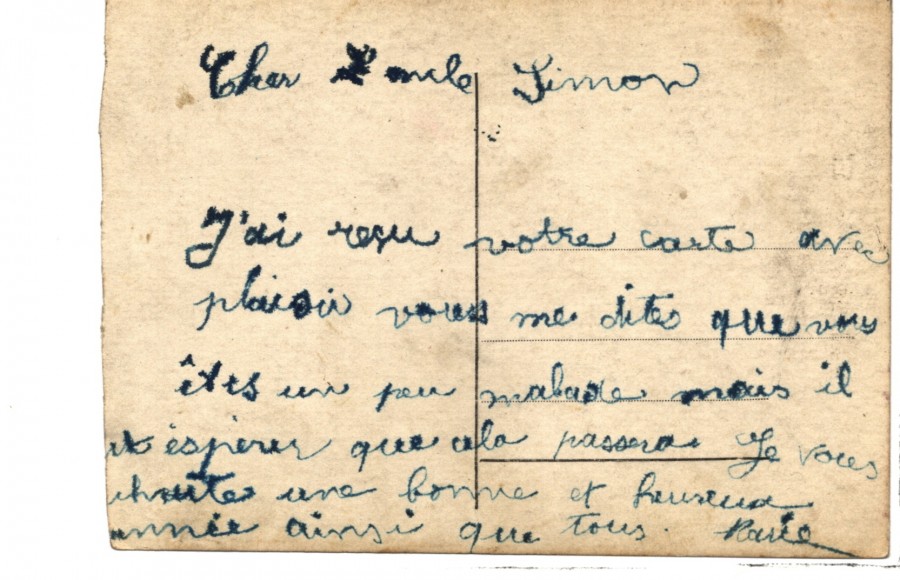 Cher Simon
J'ai reçu votre carte avec
plaisir vous me dites que vous
êtes un peu malade mais il
espérer que cela passera. Je vous
une bonne et heureux
année ainsi que tous.